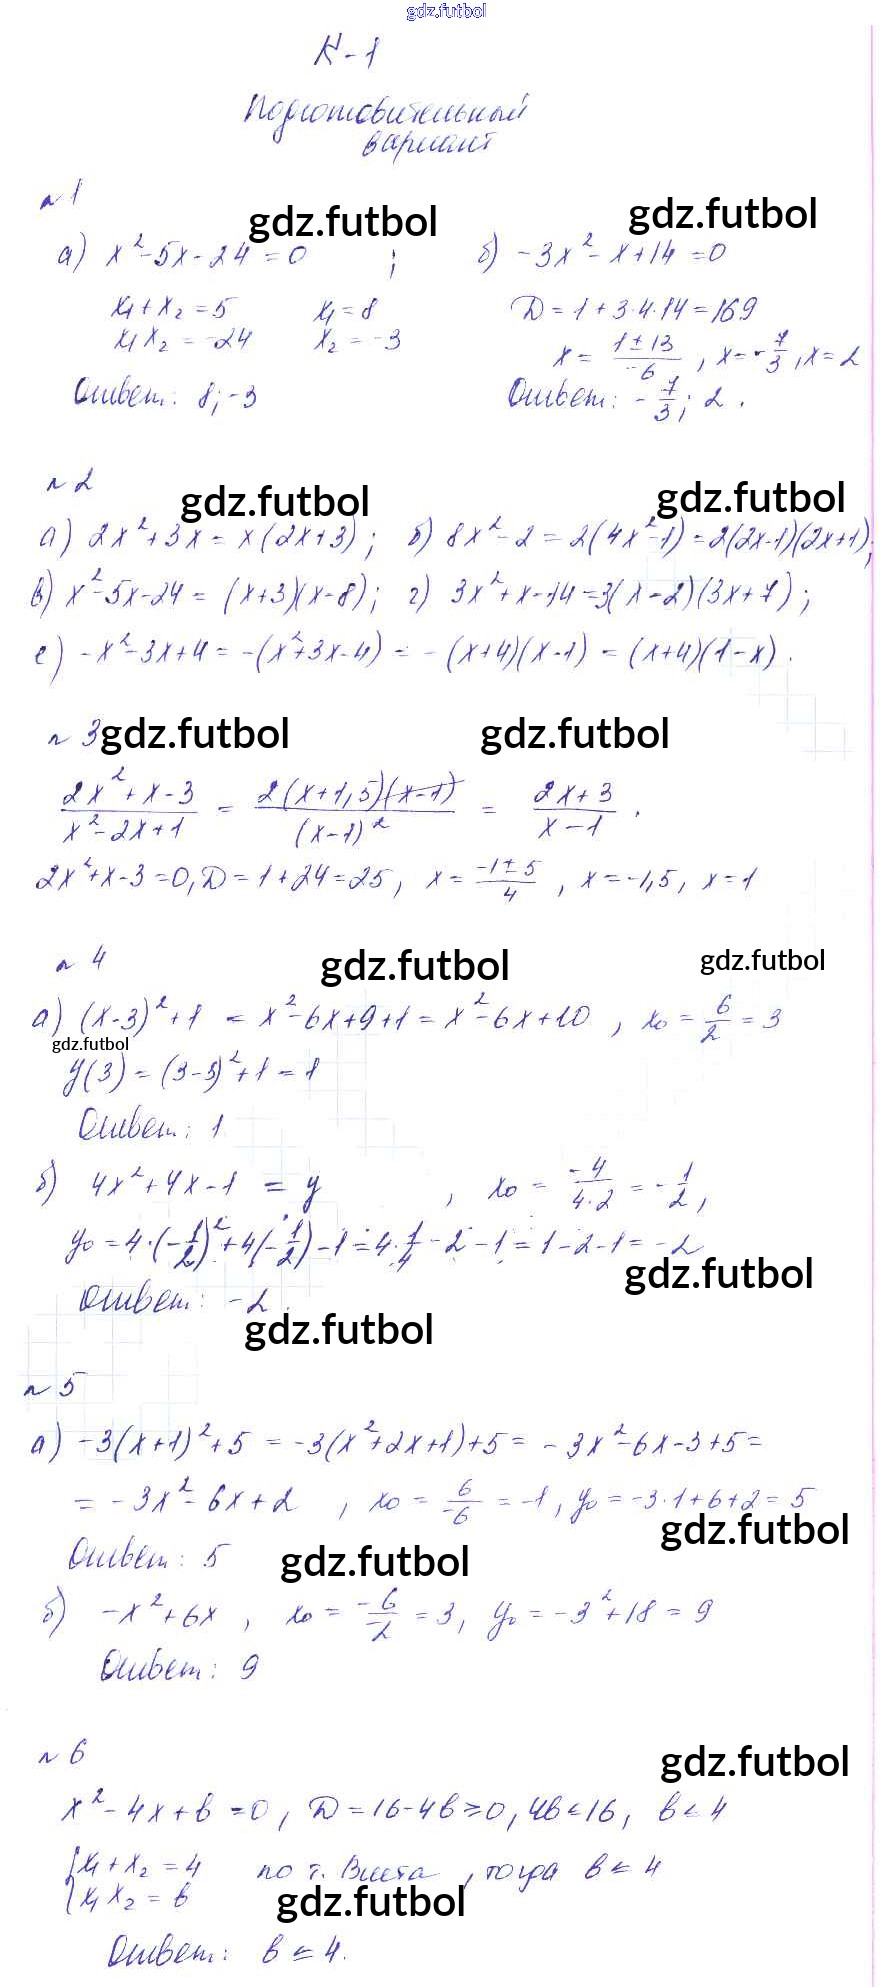 gdz.futbol
К-1
Подготовительный
вариант
№1
gdz.futbol gdz.futbol
а) x²-5x-24=0 ; б) -3x²-x+14=0
x₁+x₂=5 x₁=8 D=1+3·4·14=169
x₁x₂=-24 x₂=-3 x=(1±13)/(-6), x=-7/3, x=2
Ответ: 8;-3 Ответ: -7/3; 2.
№2
gdz.futbol gdz.futbol
а) 2x²+3x=x(2x+3); б) 8x²-2=2(4x²-1)=2(2x-1)(2x+1);
в) x²-5x-24=(x+3)(x-8); г) 3x²+x-14=3(x-2)(3x+7);
е) -x²-3x+4=-(x²+3x-4)=-(x+4)(x-1)=(x+4)(1-x).
№3 gdz.futbol gdz.futbol
(2x²+x-3)/(x²-2x+1) = 2(x+1,5)(x-1)/(x-1)² = (2x+3)/(x-1).
2x²+x-3=0, D=1+24=25, x=(-1±5)/4, x=-1,5, x=1
№4 gdz.futbol gdz.futbol
а) (x-3)²+1 = x²-6x+9+1=x²-6x+10, x₀=6/2=3
gdz.futbol
y(3)=(3-3)²+1=1
Ответ: 1
б) 4x²+4x-1=y, x₀=-4/(4·2)=-1/2,
y₀=4·(-1/2)²+4(-1/2)-1=4·1/4-2-1=1-2-1=-2
gdz.futbol
Ответ: -2.
gdz.futbol
№5
а) -3(x+1)²+5=-3(x²+2x+1)+5=-3x²-6x-3+5=
=-3x²-6x+2, x₀=6/(-6)=-1, y₀=-3·1+6+2=5
gdz.futbol
Ответ: 5
gdz.futbol
б) -x²+6x, x₀=-6/(-2)=3, y₀=-3²+18=9
Ответ: 9
№6
gdz.futbol
x²-4x+b=0, D=16-4b≥0, 4b≤16, b≤4
{x₁+x₂=4 по т. Виета, тогда b≤4
x₁x₂=b
gdz.futbol
Ответ: b≤4.